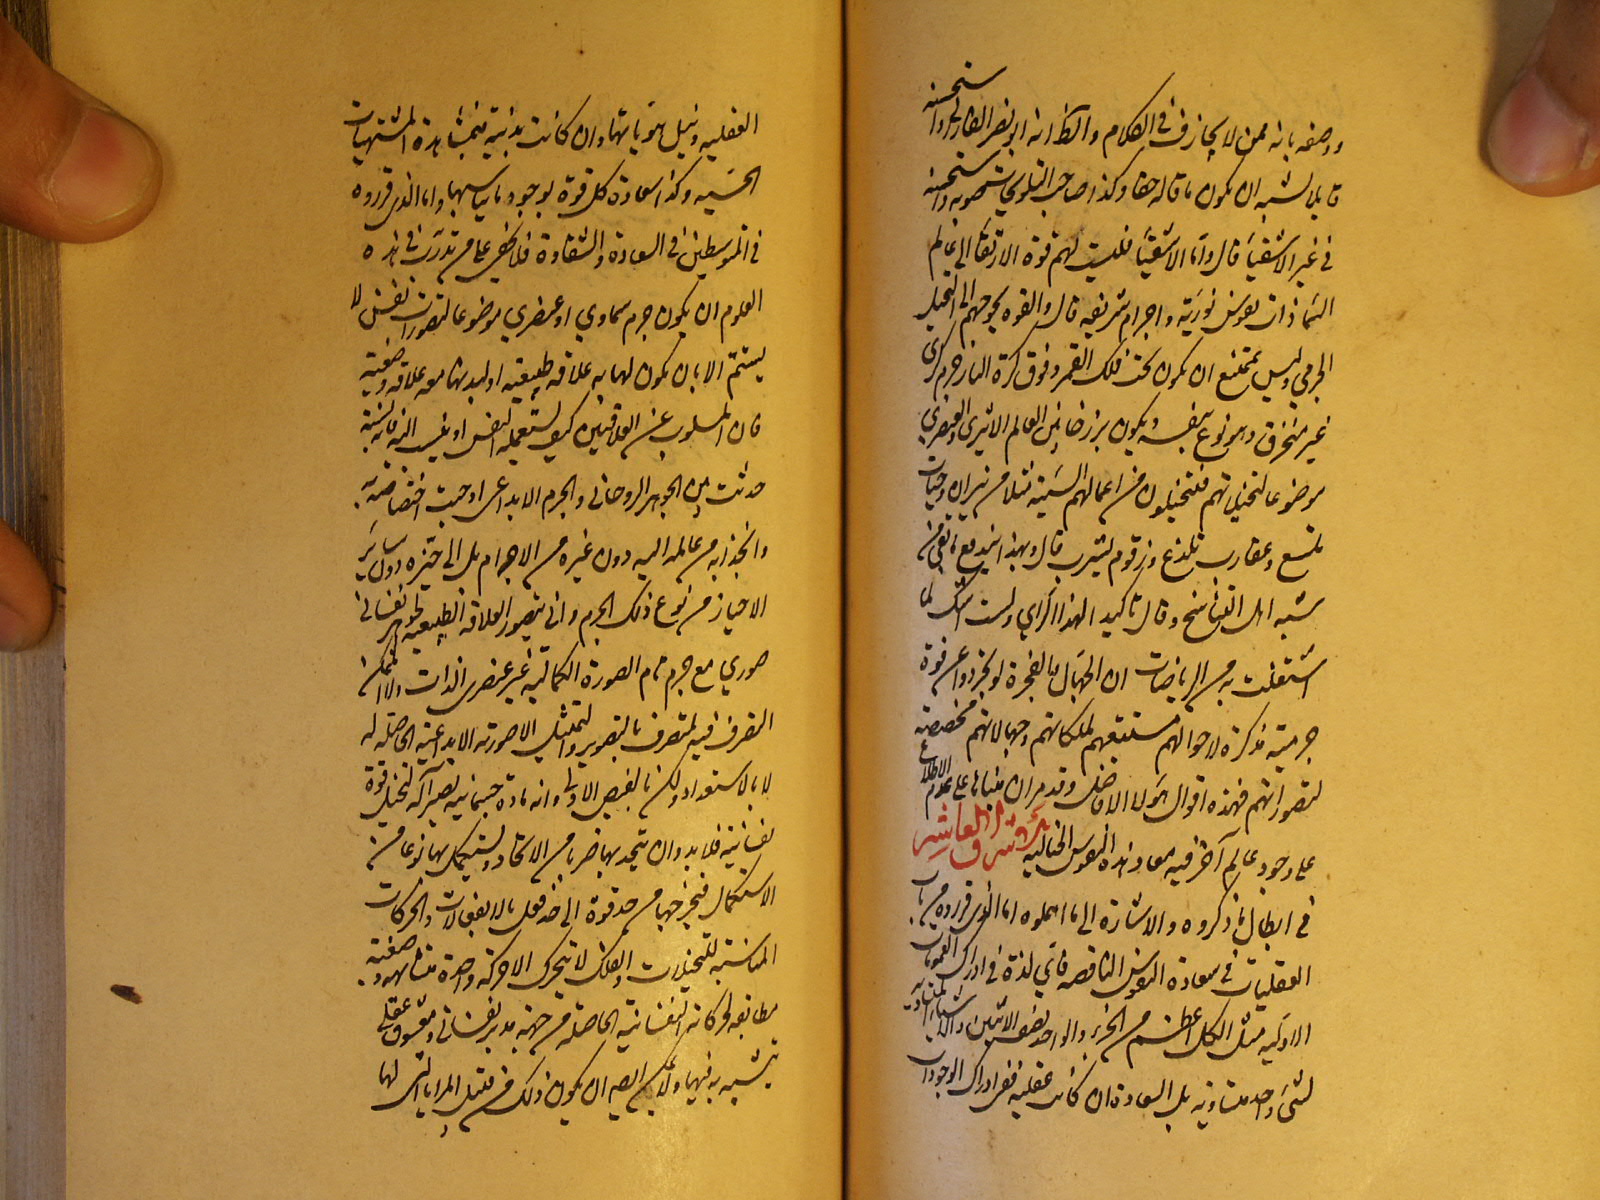 ووصفه بانه ممن لا يجازف في الكلام والظ انه ابو نصر الفارابي واستحسنه
قايلا يشبه ان يكون ما قاله حقا وكذا صاحب التلويحات صوبه واستحسنه
في غير الاشقيآ قال واما الاشقيآ فليست لهم قوة الارتقآ الى عالم
السمآ ذات نفوس نورية واجرام شريفه قال والقوه تحوجهم الى التخيل
الجرمي وليس بممتنع ان يكون تحت فلك القمر وفوق كرة النار جرم كري
غير منخرق وهو نوع بنفسه ويكون برزخا بين العالم الاثيري والعنصري
موضوعا لتخيلاتهم فتخيلون من اعمالهم السيئة مثلا من نيران وحيات
تلسع وعقارب تلدغ وزقوم يشرب قال وبهذا يندفع ما بقي من
شبه اهل التناسخ وقال تاكيدا لهذا الراي ولست اشك لما
اشتغلت به من الرياضات ان الجهال والفجرة لو تجردوا عن قوة
جرمية مذكرة لاحوالهم مستتبعهم لملكاتهم وجهالاتهم مخصصة
لتصوراتهم فهذه اقوال هولآ الافاضل وقد مر ان مبناها على عدم الاطلاع
على وجود عالم آخر فيه معاد هذه النفوس الخيالية الاشراق العاشر
في ابطال ما ذكروه والاشارة الى ما اهملوه اما الذي قرروه من باب
العقليات في سعادة النفوس الناقصه فاي لذة في ادراك العمومات
الاولية مثل الكل اعظم من الجزء والواحد نصف الاثنين والاشياء المساوية
لشئ واحد متساويه بل السعادة ان كانت عقلية ففي ادراك الوجودات
العقليه ونيل هوياتها وان كانت بدنية فبمشاهدة المشتهيات
الحسيه وكذا سعادة كل قوة بوجود ما يناسبها واما الذي قرروه
في المتوسطين في السعادة والشقاوة فلا يخفى على من تدرب في هذه
العلوم ان يكون جرم سماوي او عنصري موضوعا لتصورات نفس لا
يستتم الا بان يكون لها به علاقه طبيعيه او لبدنها معه علاقه وضعية
فان المسلوب عن العلاقتين كيف يستعمله النفس او ينسب اليه فاية نسبة
حدثت بين الجوهر الروحاني والجرم الابداعي اوجبت اختصاصه به
وانجذابه من عالمه اليه دون غيره من الاجرام بل الى حيزه دون ساير
الاحياز من نوع ذلك الجرم واني يتصور العلاقه الطبيعيه لجوهر نفساني
صوري مع جرم تام الصورة الكمالية غير عنصري الذات ولا الممكن
التصرف فيه لمتصرف بالتصوير والتمثيل الا صورته الابداعية الحاصله له
لا بالاستعداد ولكن بالفيض الاول وانه مادة جسمانيه تصير آلة لتخيل قوة
نفسانية فلا بد وان يتحد بها ضربا من الاتحاد ويستكمل بها نوعا من
الاستكمال فتخرجها من حد قوة الى حد فعل بالانفعالات والحركات
المناسبة للتخيلات والفلك لا يتحرك الا حركة واحدة متشابهه وضعية
مطابقه لحركاته النفسانية الحاصلة من جهة مدبر نفساني ومعشوق عقلي
يتشبه به فيها وليس ان يكون ذلك من قبيل المرايا التي لها